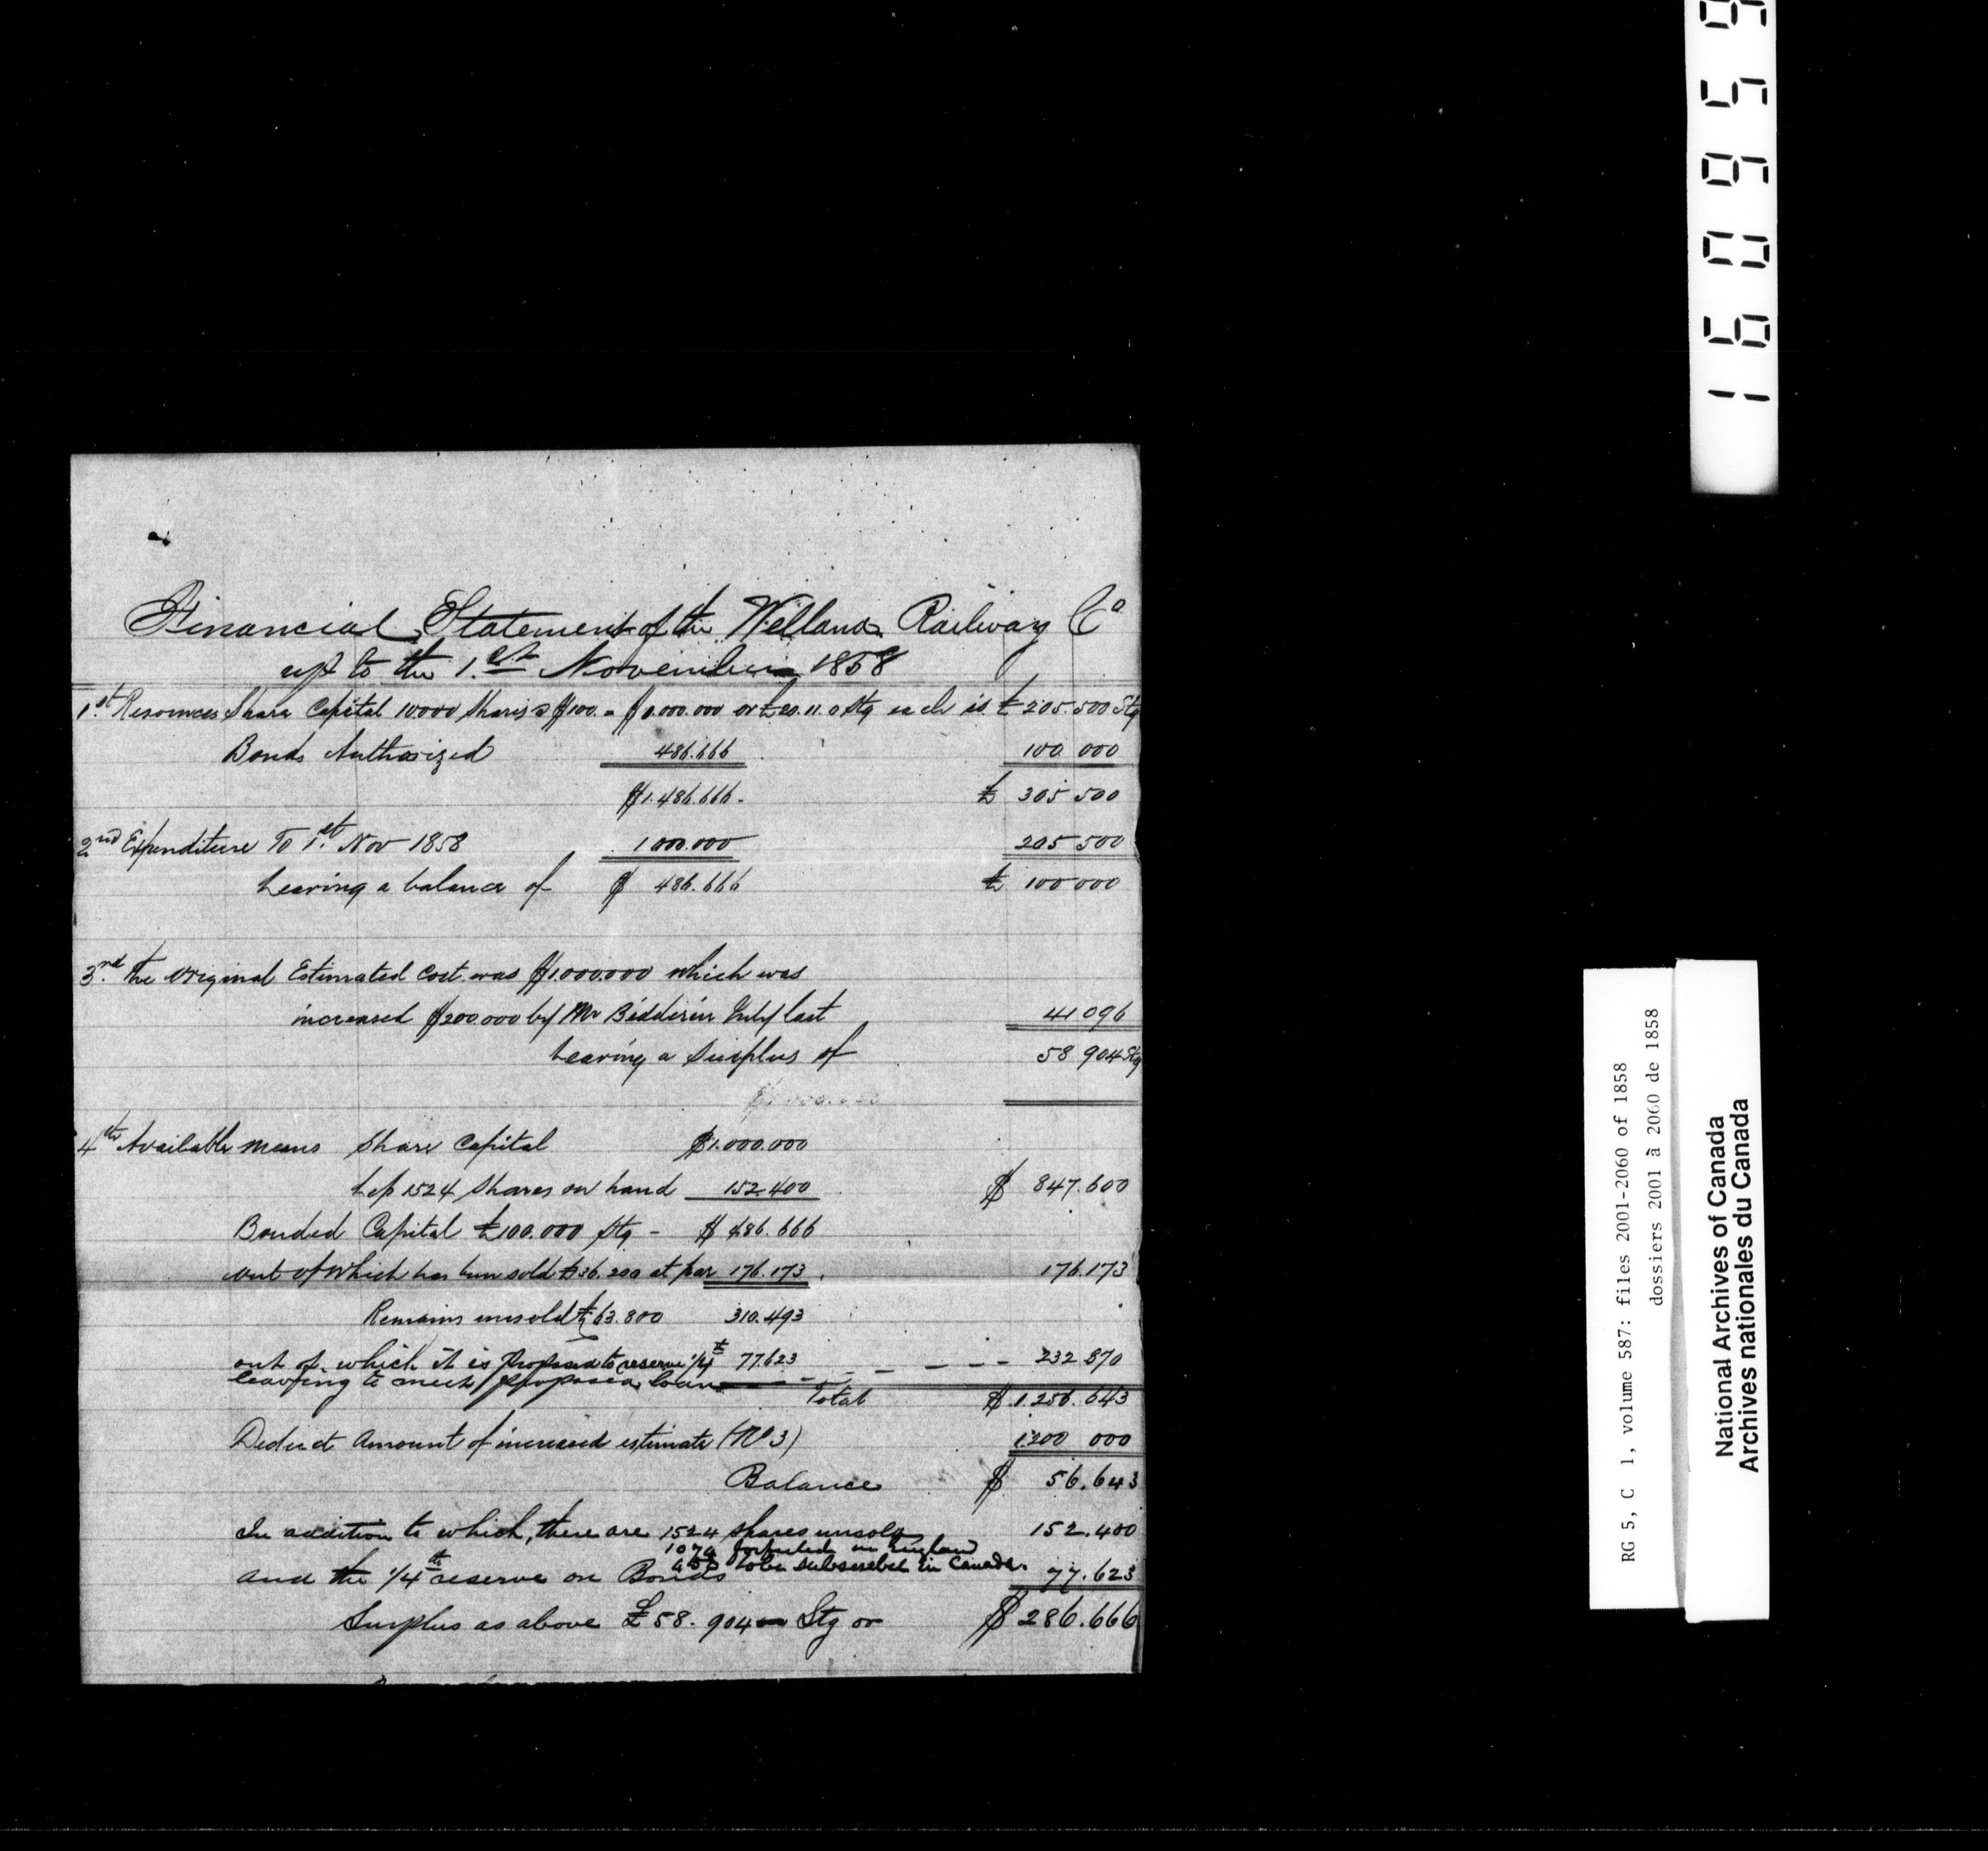 Financial Statement of the Welland Railway Co
up to the 1.st November 1858
1.st Resources Share Capital 10000 Shares @ $100. = $1.000.000 or £20.11.0 Stg each is £205.500 Stg
Bonds Authorized 486.666 100 000
$1.486.666.- £ 305 500
2nd Expenditure To 1.st Nov 1858 1000.000 205 500
Leaving a balance of $ 486.666 £ 100 000
3.rd The Original Estimated Cost was $1.000.000 which was
increased $200.000 by Mr Bidder in July last 41 096
Leaving a Surplus of 58 904 Stg
4th Available means Share Capital $1.000.000
Less 1524 Shares on hand 152.400 $ 847.600
Bonded Capital £100.000 Stg - $ 486.666
out of which has been sold £36.200 at par 176.173. 176.173
Remains unsold £63.800 310.493
out of which it is proposed to reserve 1/4t 77.623 - - - - 232 870
leaving to meet proposed loan
Total $ 1.256.643
Deduct Amount of increased estimate (No 3) 1.200 000
Balance $ 56.643
In addition to which, there are 1524 shares unsold 152.400
1074 forfeited in England
450 to be subscribed in Canada.
and the 1/4th reserve on Bonds 77.623
Surplus as above £58.904 Stg or $286.666
160959
RG 5, C 1, volume 587: files 2001-2060 of 1858
dossiers 2001 à 2060 de 1858
National Archives of Canada
Archives nationales du Canada